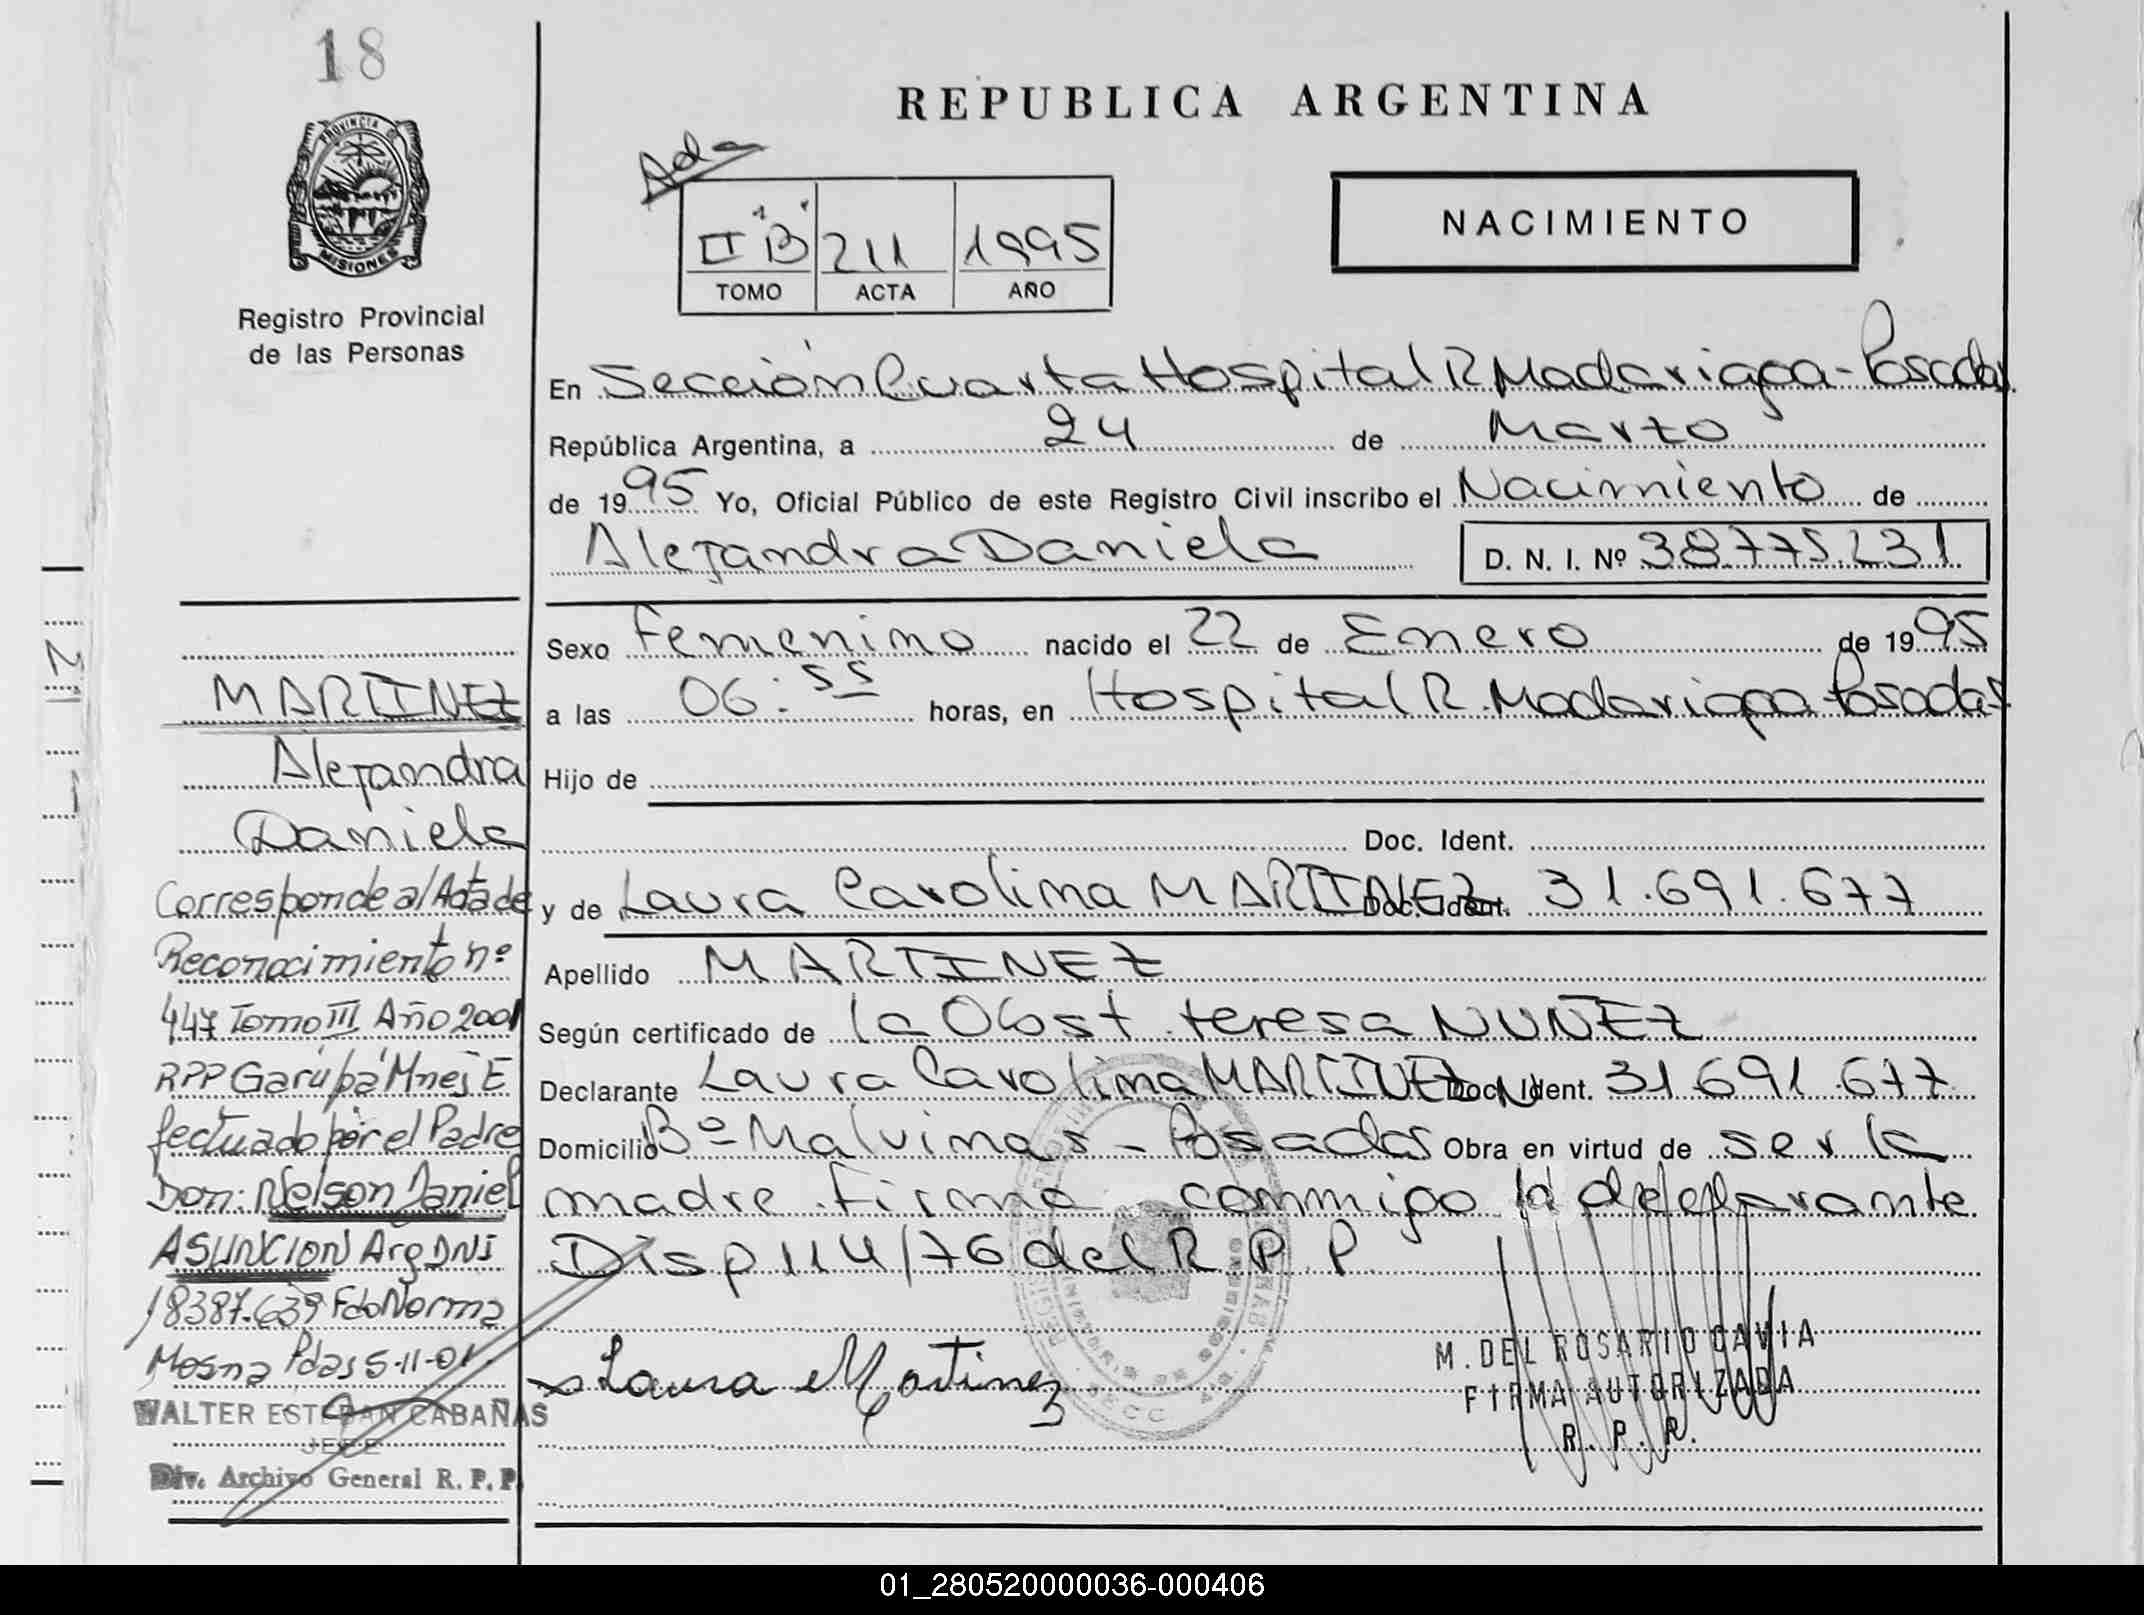 18
REPUBLICA ARGENTINA
PROVINCIA DE
MISIONES
Registro Provincial
de las Personas
Ada
II "B" 211 1995
TOMO ACTA AÑO
NACIMIENTO
En Sección Cuarta Hospital R Madariaga - Posadas
República Argentina, a 24 de Marzo
de 1995 Yo, Oficial Público de este Registro Civil inscribo el Nacimiento de
Alejandra Daniela D. N. I. Nº 38.775.231
Sexo Femenino nacido el 22 de Enero de 1995
a las 06:55 horas, en Hospital R. Madariaga Posadas
Hijo de
Doc. Ident.
y de Laura Carolina MARTINEZ Doc. Ident. 31.691.677
Apellido MARTINEZ
Según certificado de la Obst. teresa NUÑEZ
Declarante Laura Carolina MARTINEZ Doc. Ident. 31.691.677
Domicilio Bº Malvinas - Posadas Obra en virtud de ser la
madre. Firma conmigo la declarante
Disp 114/76 del R P P
Laura Martinez
M. DEL ROSARIO GAVIA
FIRMA AUTORIZADA
R. P. P.
MARTINEZ
Alejandra
Daniela
Corresponde al Acta de
Reconocimiento nº
447 Tomo III Año 2001
RPP Garupá Mnes E
fectuado por el Padre
Don: Nelson Daniel
ASUNCION Arg DNI
18387.639 Fdo Norma
Mosna Pdas 5-11-01
WALTER ESTEBAN CABAÑAS
JEFE
Div. Archivo General R. P. P.
01_280520000036-000406